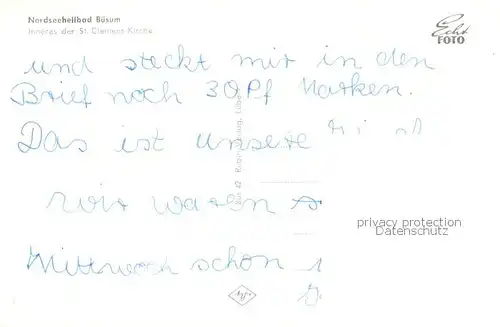 Nordseeheilbad Büsum
Inneres der St. Clemens-Kirche
Echt
FOTO
und steckt mir in den
Brief noch 30Pf Marken.
Das ist unsere
wir waren
Mittwoch schon
privacy protection
Datenschutz
Agfa